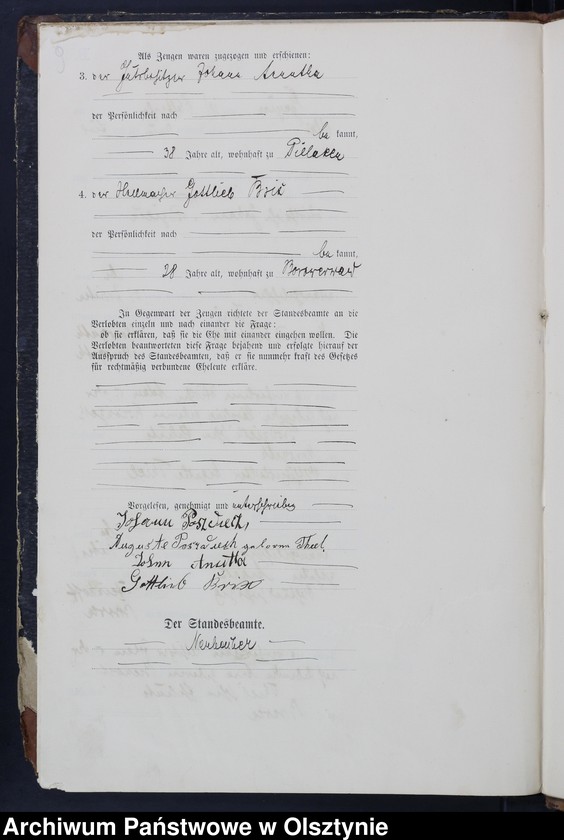 Als Zeugen waren zugezogen und erschienen:
3. der Johann
der Persönlichkeit nach
be kannt,
38 Jahre alt, wohnhaft zu
4. der Gottlieb Brix
der Persönlichkeit nach
be kannt,
28 Jahre alt, wohnhaft zu
In Gegenwart der Zeugen richtete der Standesbeamte an die
Verlobten einzeln und nach einander die Frage:
ob sie erklären, daß sie die Ehe mit einander eingehen wollen. Die
Verlobten beantworteten diese Frage bejahend und erfolgte hierauf der
Ausspruch des Standesbeamten, daß er sie nunmehr kraft des Gesetzes
für rechtmäßig verbundene Eheleute erkläre.
Vorgelesen, genehmigt und unterschrieben
Johann
Auguste geborne
Gottlieb Brix
Der Standesbeamte.
Archiwum Państwowe w Olsztynie